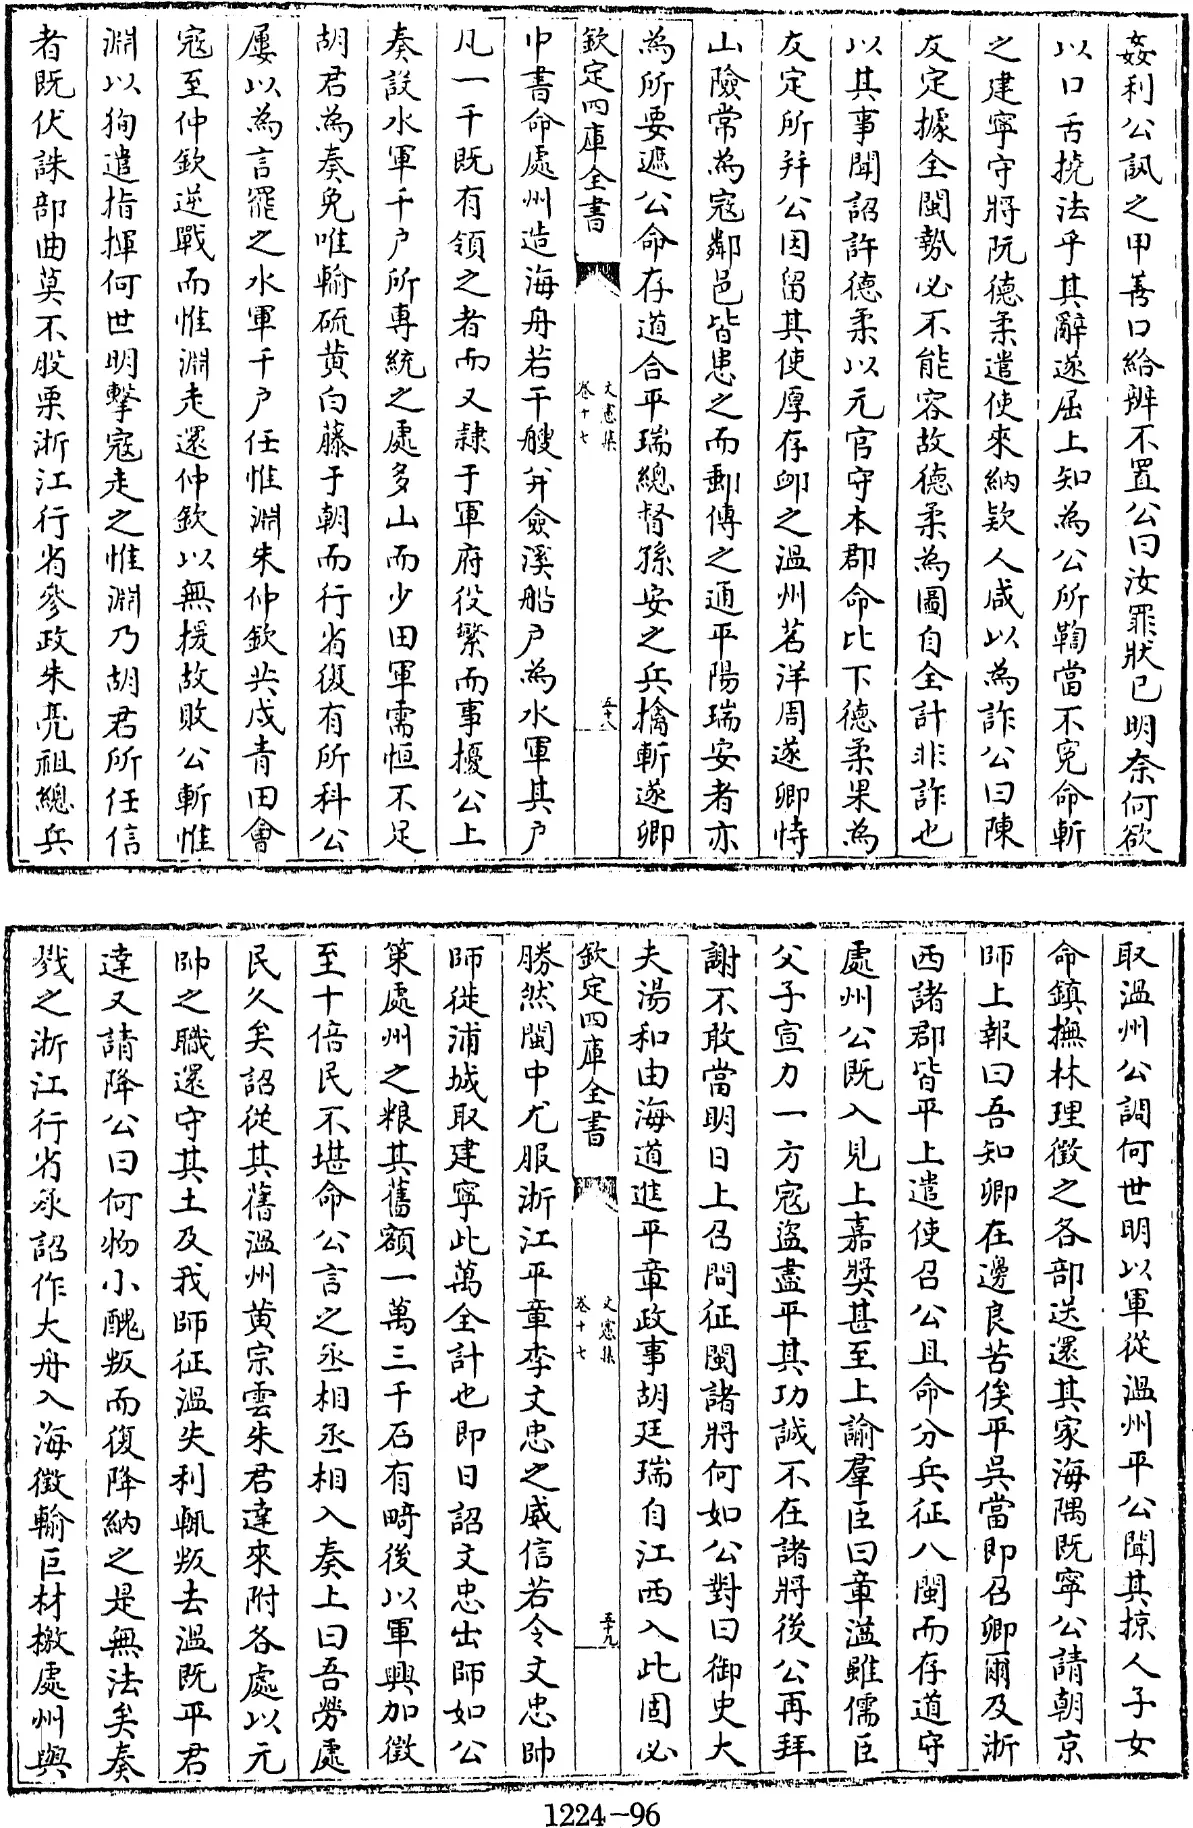 姦利公訊之甲善口給辨不置公曰汝罪狀已明奈何欲
以口舌撓法乎其辭遂屈上知為公所鞫當不寃命斬
之建寧守將阮德柔遣使來納欵人咸以為詐公曰陳
友定據全閩勢必不能容故德柔為圖自全計非詐也
以其事聞詔許德柔以元官守本郡命比下德柔果為
友定所并公因留其使厚存卹之温州茗洋周遂卿恃
山險常為寇鄰邑皆患之而郵傳之通平陽瑞安者亦
為所要遮公命存道合平瑞總督孫安之兵擒斬遂卿
欽定四庫全書
文憲集
卷十七
五十八
中書命處州造海舟若干艘并僉溪船户為水軍其户
凡一千既有領之者而又隸于軍府役繁而事擾公上
奏設水軍千户所專統之處多山而少田軍需恒不足
胡君為奏免唯輸硫黄白藤于朝而行省復有所科公
屢以為言罷之水軍千户任惟淵朱仲欽共戍青田會
寇至仲欽逆戰而惟淵走還仲欽以無援故敗公斬惟
淵以狥遣指揮何世明擊寇走之惟淵乃胡君所任信
者既伏誅部曲莫不股栗浙江行省參政朱亮祖總兵
取温州公調何世明以軍從温州平公聞其掠人子女
命鎮撫林理徵之各部送還其家海隅既寧公請朝京
師上報曰吾知卿在邊良苦俟平吳當即召卿爾及浙
西諸郡皆平上遣使召公且命分兵征八閩而存道守
處州公既入見上嘉奬甚至上諭羣臣曰章溢雖儒臣
父子宣力一方寇盜盡平其功誠不在諸將後公再拜
謝不敢當明日上召問征閩諸將何如公對曰御史大
夫湯和由海道進平章政事胡廷瑞自江西入此固必
欽定四庫全書
文憲集
卷十七
五十九
勝然閩中尤服浙江平章李文忠之威信若令文忠帥
師從浦城取建寧此萬全計也即日詔文忠出師如公
策處州之粮其舊額一萬三千石有畸後以軍興加徵
至十倍民不堪命公言之丞相丞相入奏上曰吾勞處
民久矣詔從其舊温州黄宗雲朱君達來附各處以元
帥之職還守其土及我師征温失利輒叛去温既平君
達又請降公曰何物小醜叛而復降納之是無法矣奏
戮之浙江行省承詔作大舟入海徵輸巨材檄處州與
1224-96